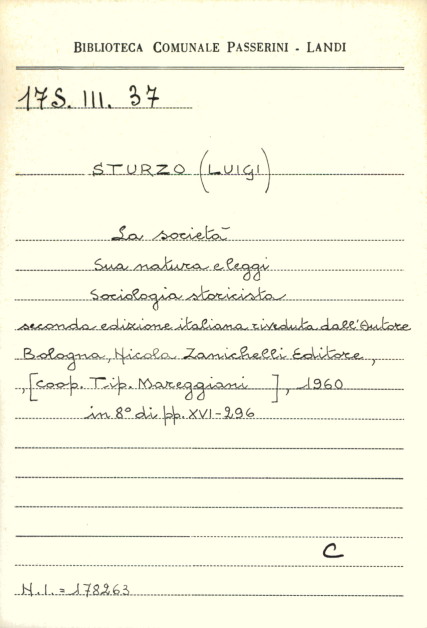 BIBLIOTECA COMUNALE PASSERINI - LANDI
17S. III. 37
STURZO (LUIGI)
La società
Sua natura e leggi
Sociologia storicista
seconda edizione italiana riveduta dall'Autore
Bologna, Nicola Zanichelli Editore,
,[coop. Tip. Mareggiani ], 1960
in 8° di pp. XVI-296
C
N.I. = 178263